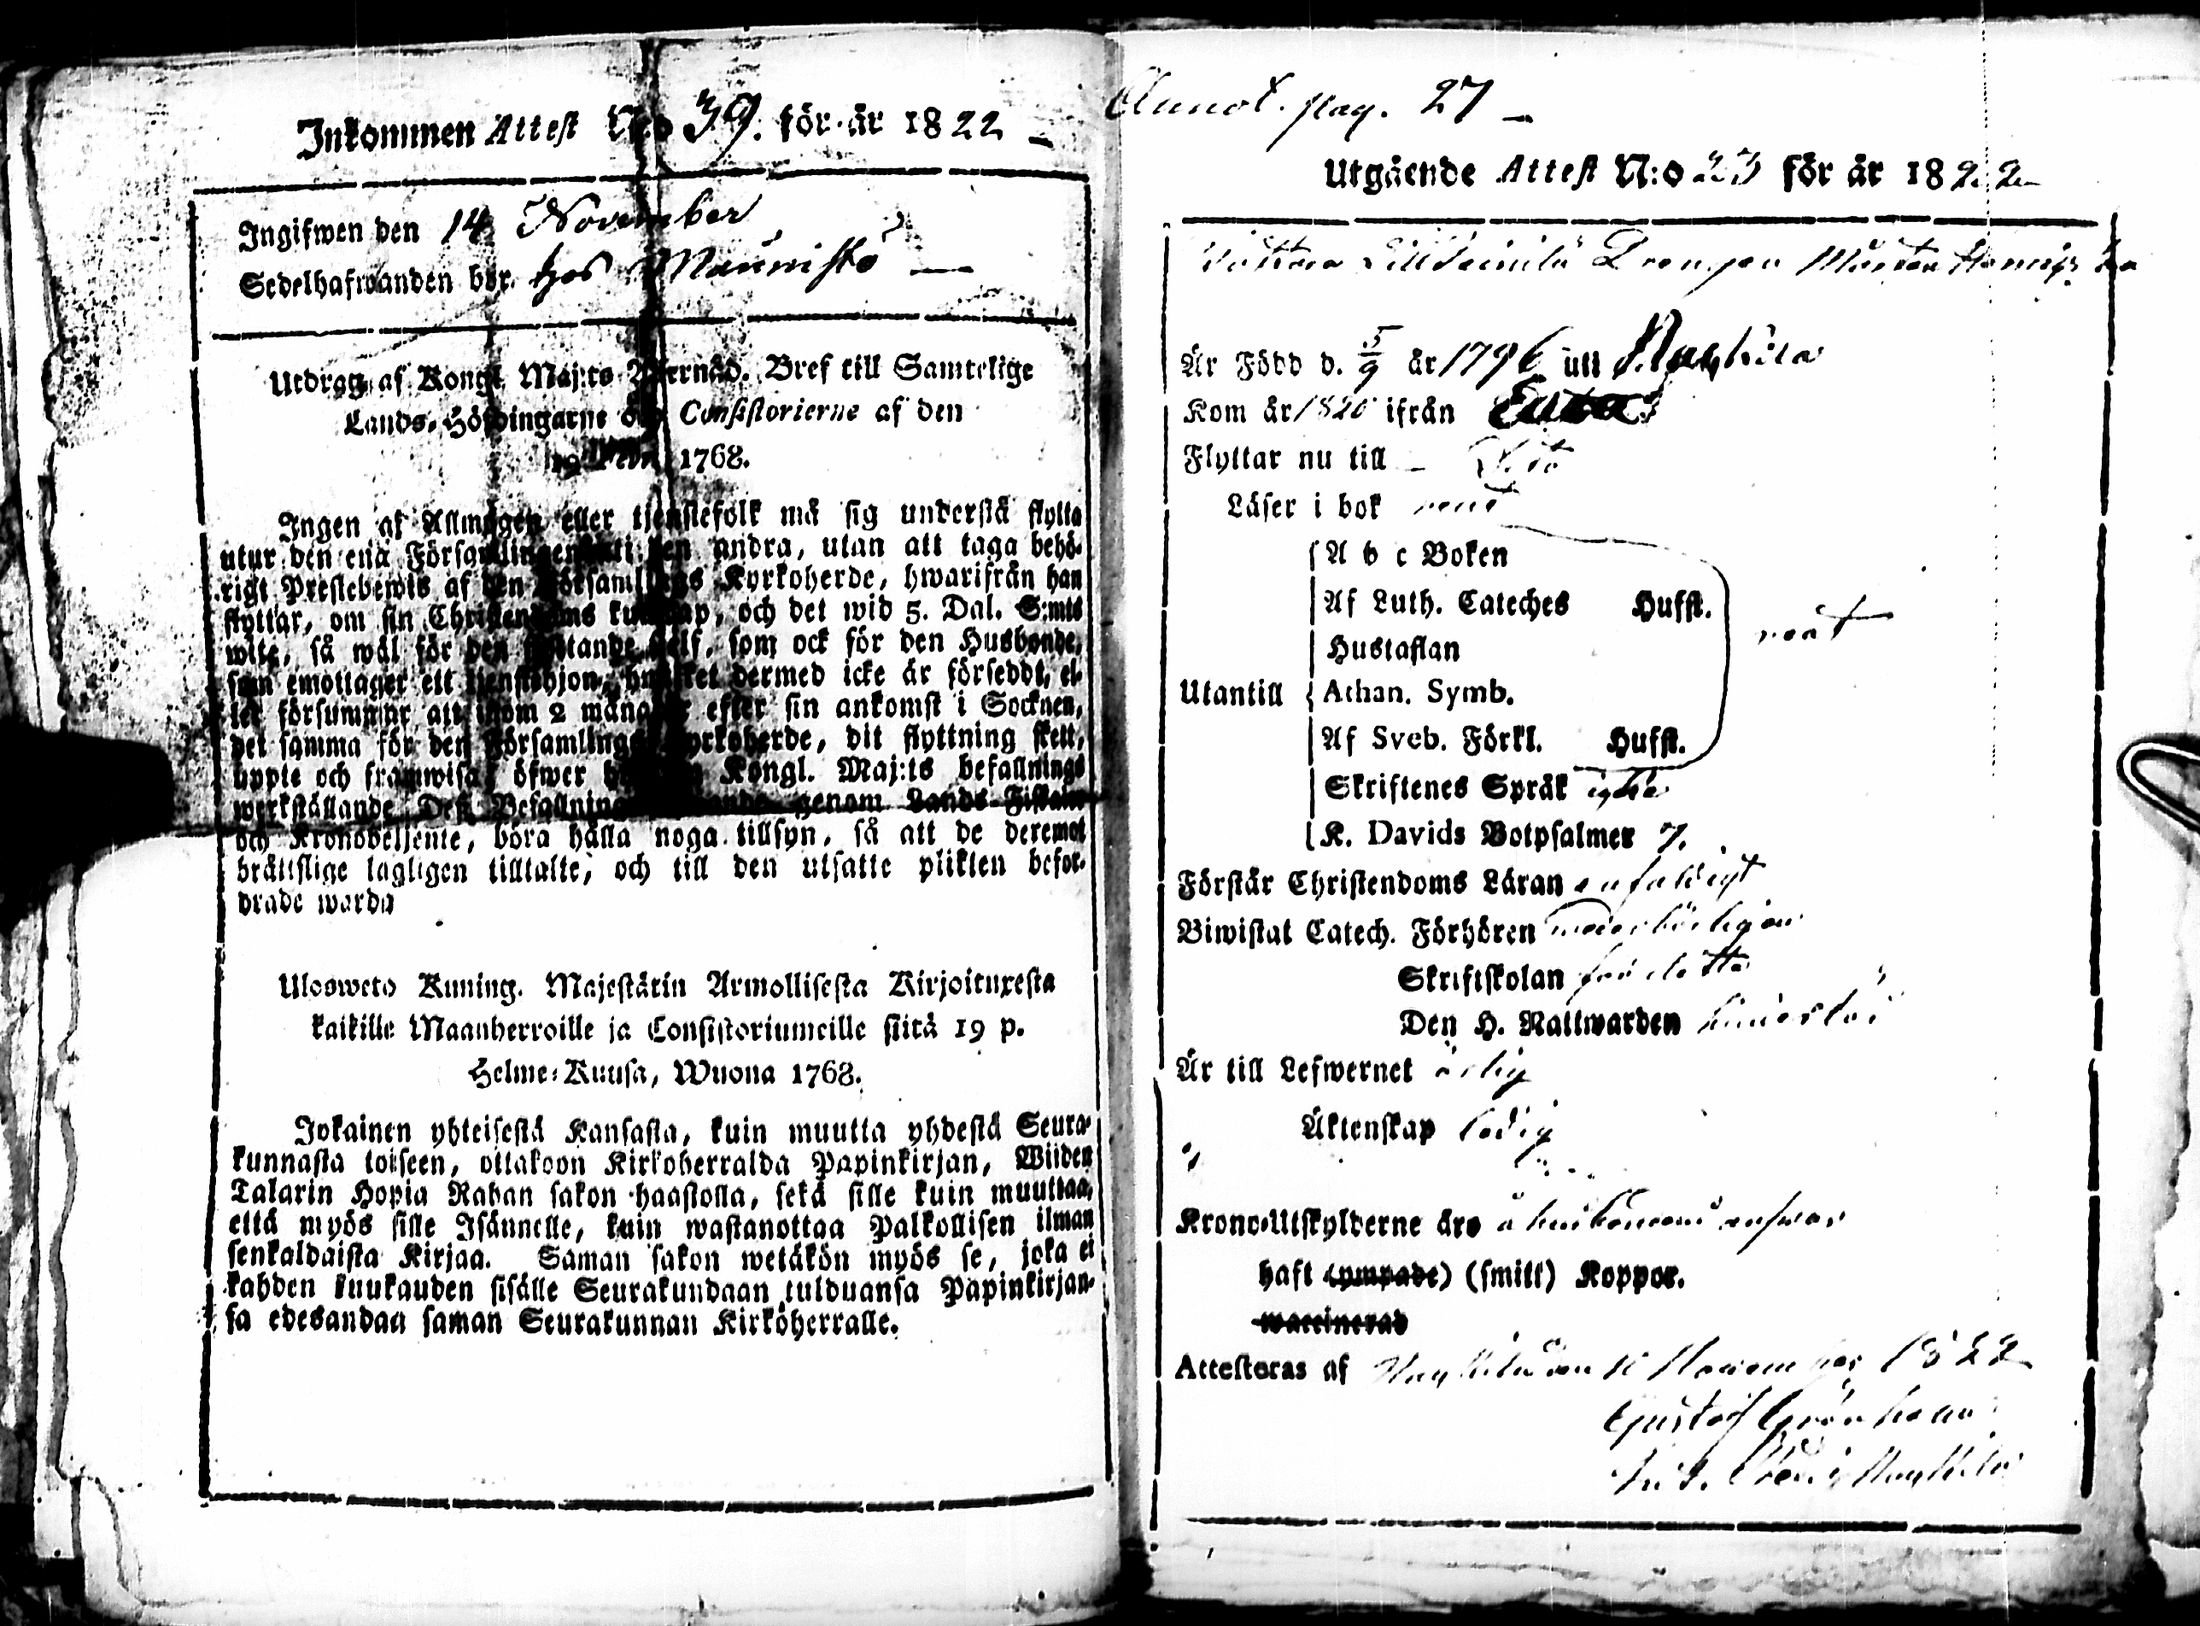 Inkommen Attest N:o 39. för år 1822
Ingifwen den 14 November
Sedelhafwanden bor. hos Maunisto
Utdrag af Kongl. Maj:ts Bref till Samtelige
Lands-Höfdingarne och Consistorierne af den
19 1768.
Ingen af Allmogen eller tjenstefolk må sig understå flytta
utur den ena Församlingen till den andra, utan att taga behö-
rigt Prestebewis af den Församlings Kyrkoherde, hwarifrån han
flyttar, om sin Christendoms kunskap, och det wid 5. Dal. S:mts
wite, så wäl för den flyttande self, som ock för den Husbonde,
som emottager ett tjenstehjon, hwilket dermed icke är försedd, el-
ler försummar att inom 2 månader efter sin ankomst i Socknen,
det samma för den Församlings Kyrkoherde, dit flyttning skett,
uppte och framwisa; öfwer Kongl. Maj:ts befallnings
werkställande Deß Befallning genom Lands-Fiskaler
och Kronobetjente, böra hålla noga tillsyn, så att de deremot
bråttslige lagligen tilltalte, och till den utsatte plikten befor-
drade warda
Ulosweto Kuning. Majestätin Armollisesta Kirjoituxesta
kaikille Maanherroille ja Consistoriumeille siitä 19 p.
Helme-Kuusa, Wuona 1768.
Jokainen yhteisestä Kansasta, kuin muutta yhdestä Seura-
kunnasta toiseen, ottakoon Kirkoherralda Papinkirjan, Wiiden
Talarin Hopia Rahan sakon haastolla, sekä sille kuin muuttaa,
että myös sille Isännelle, kuin wastanottaa Palkollisen ilman
senkaldaista Kirjaa. Saman sakon wetäkön myös se, joka ei
kahden kuukauden sisälle Seurakundaan tulduansa Papinkirjan-
sa edesandaa saman Seurakunnan Kirkoherralle.
Annot. pag. 27
Utgående Attest N:o 23 för år 1822
Drengen
Är Född d. 5/9 år 1796 uti Nagkila
Kom år 1820 ifrån Eura
Flyttar nu till
Läser i bok rent
A b c Boken
Af Luth. Cateches Hufst.
Hustaflan
Utantill Athan. Symb.
Af Sveb. Förkl. Hufst.
Skriftenes Språk
K. Davids Botpsalmer 7.
Förstår Christendoms Läran enfaldigt
Biwistat Catech. Förhören wederbörligen
Skriftskolan
Den H. Nattwarden
Är till Lefwernet ärlig
Äktenskap ledig
Krono-Utskylderne äro å answar
haft (ympade) (smitt) Koppor.
waccinerad
Attesteras af November 1822
Gustaf Grönholm